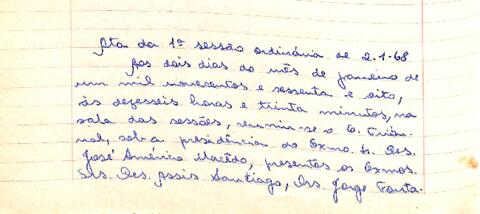 Ata da 1ª sessão ordinária de 2-1-68
Aos dois dias do mês de janeiro de
um mil novecentos e sessenta e oito,
às dezesseis horas e trinta minutos, na
sala das sessões, reuniu-se o E. Tribu-
nal, sob a presidência do Exmo. Sr. Des.
José Américo Macêdo, presentes os Exmos.
Srs. Des. Assis Santiago, Drs. Jorge Fonta-